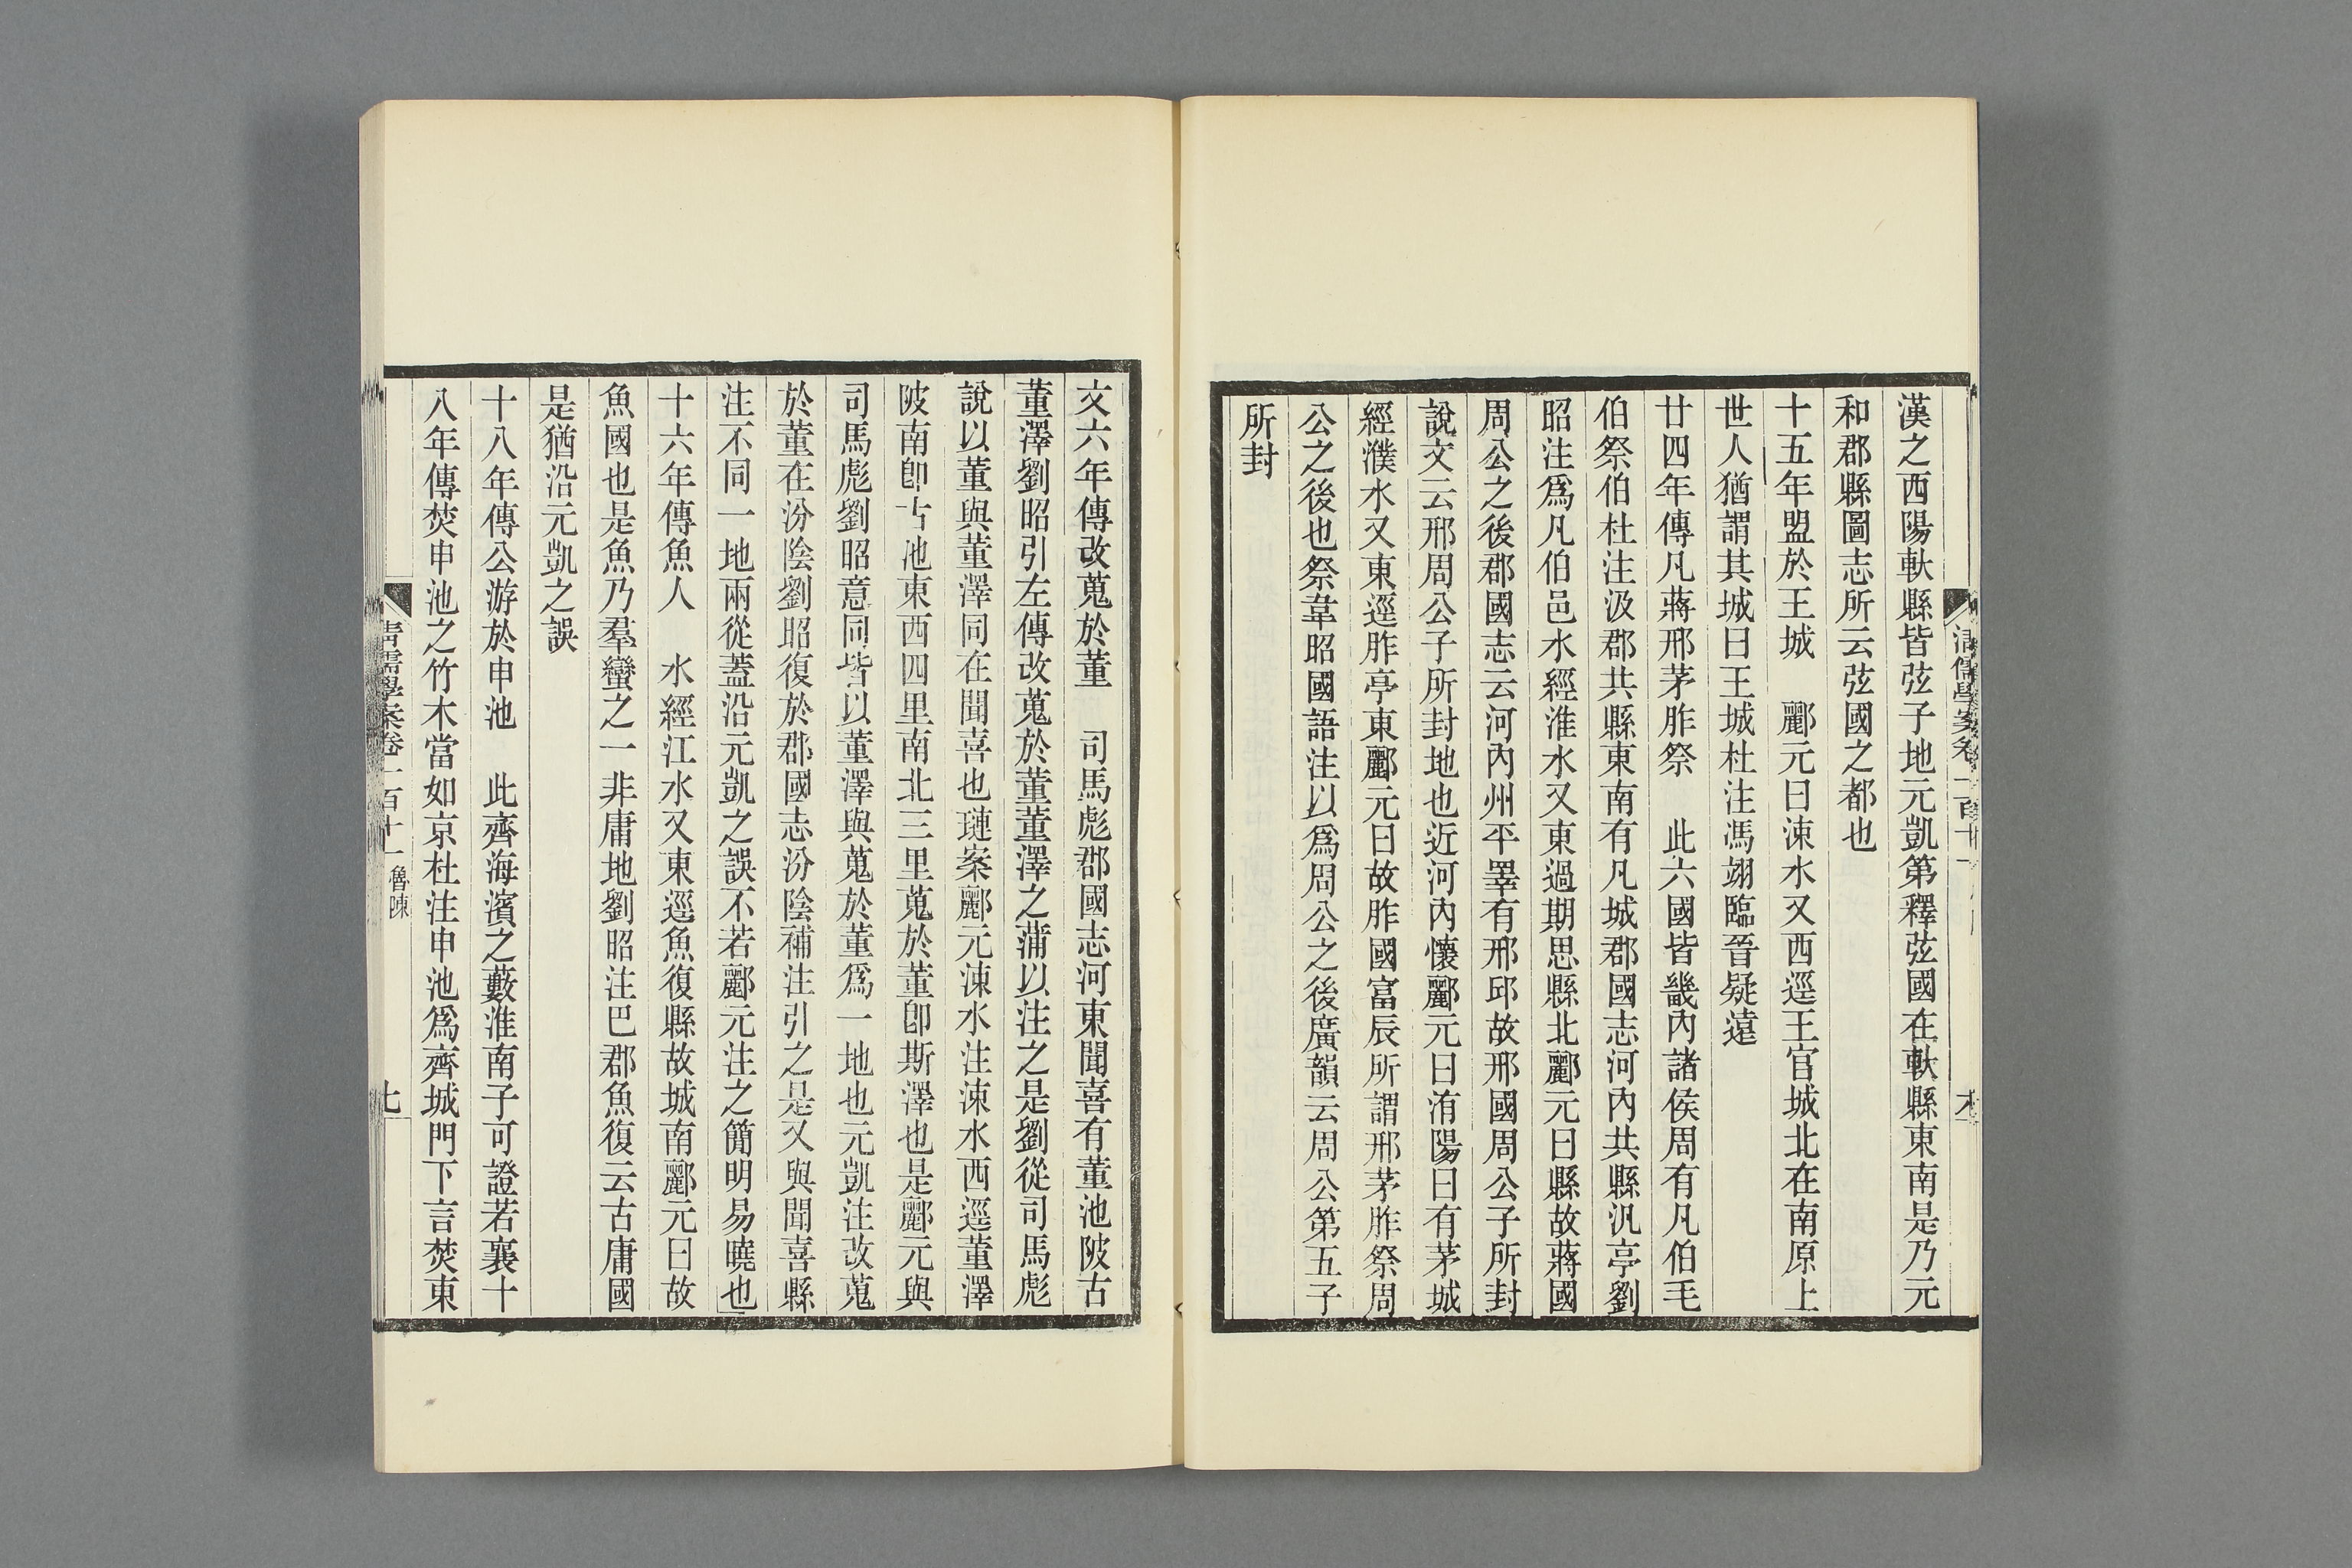 漢之西陽軑縣皆弦子地元凱第釋弦國在軑縣東南是乃元
和郡縣圖志所云弦國之都也
十五年盟於王城　酈元曰涑水又西逕王官城北在南原上
世人猶謂其城曰王城杜注馮翊臨晉疑遠
廿四年傳凡蔣邢茅胙祭　此六國皆畿內諸侯周有凡伯毛
伯祭伯杜注汲郡共縣東南有凡城郡國志河內共縣汎亭劉
昭注爲凡伯邑水經淮水又東過期思縣北酈元曰縣故蔣國
周公之後郡國志云河內州平睪有邢邱故邢國周公子所封
說文云邢周公子所封地也近河內懷酈元曰洧陽曰有茅城
經濮水又東逕胙亭東酈元曰故胙國富辰所謂邢茅胙祭周
公之後也祭韋昭國語注以爲周公之後廣韻云周公第五子
所封
文六年傳改蒐於董　司馬彪郡國志河東聞喜有董池陂古
董澤劉昭引左傳改蒐於董董澤之蒲以注之是劉從司馬彪
說以董與董澤同在聞喜也璉案酈元涑水注涑水西逕董澤
陂南卽古池東西四里南北三里蒐於董卽斯澤也是酈元與
司馬彪劉昭意同皆以董澤與蒐於董爲一地也元凱注改蒐
於董在汾陰劉昭復於郡國志汾陰補注引之是又與聞喜縣
注不同一地兩從蓋沿元凱之誤不若酈元注之簡明易曉也
十六年傳魚人　水經江水又東逕魚復縣故城南酈元曰故
魚國也是魚乃羣蠻之一非庸地劉昭注巴郡魚復云古庸國
是猶沿元凱之誤
十八年傳公游於申池　此齊海濱之藪淮南子可證若襄十
八年傳焚申池之竹木當如京杜注申池爲齊城門下言焚東
清儒學案卷一百十一　魯陳　七